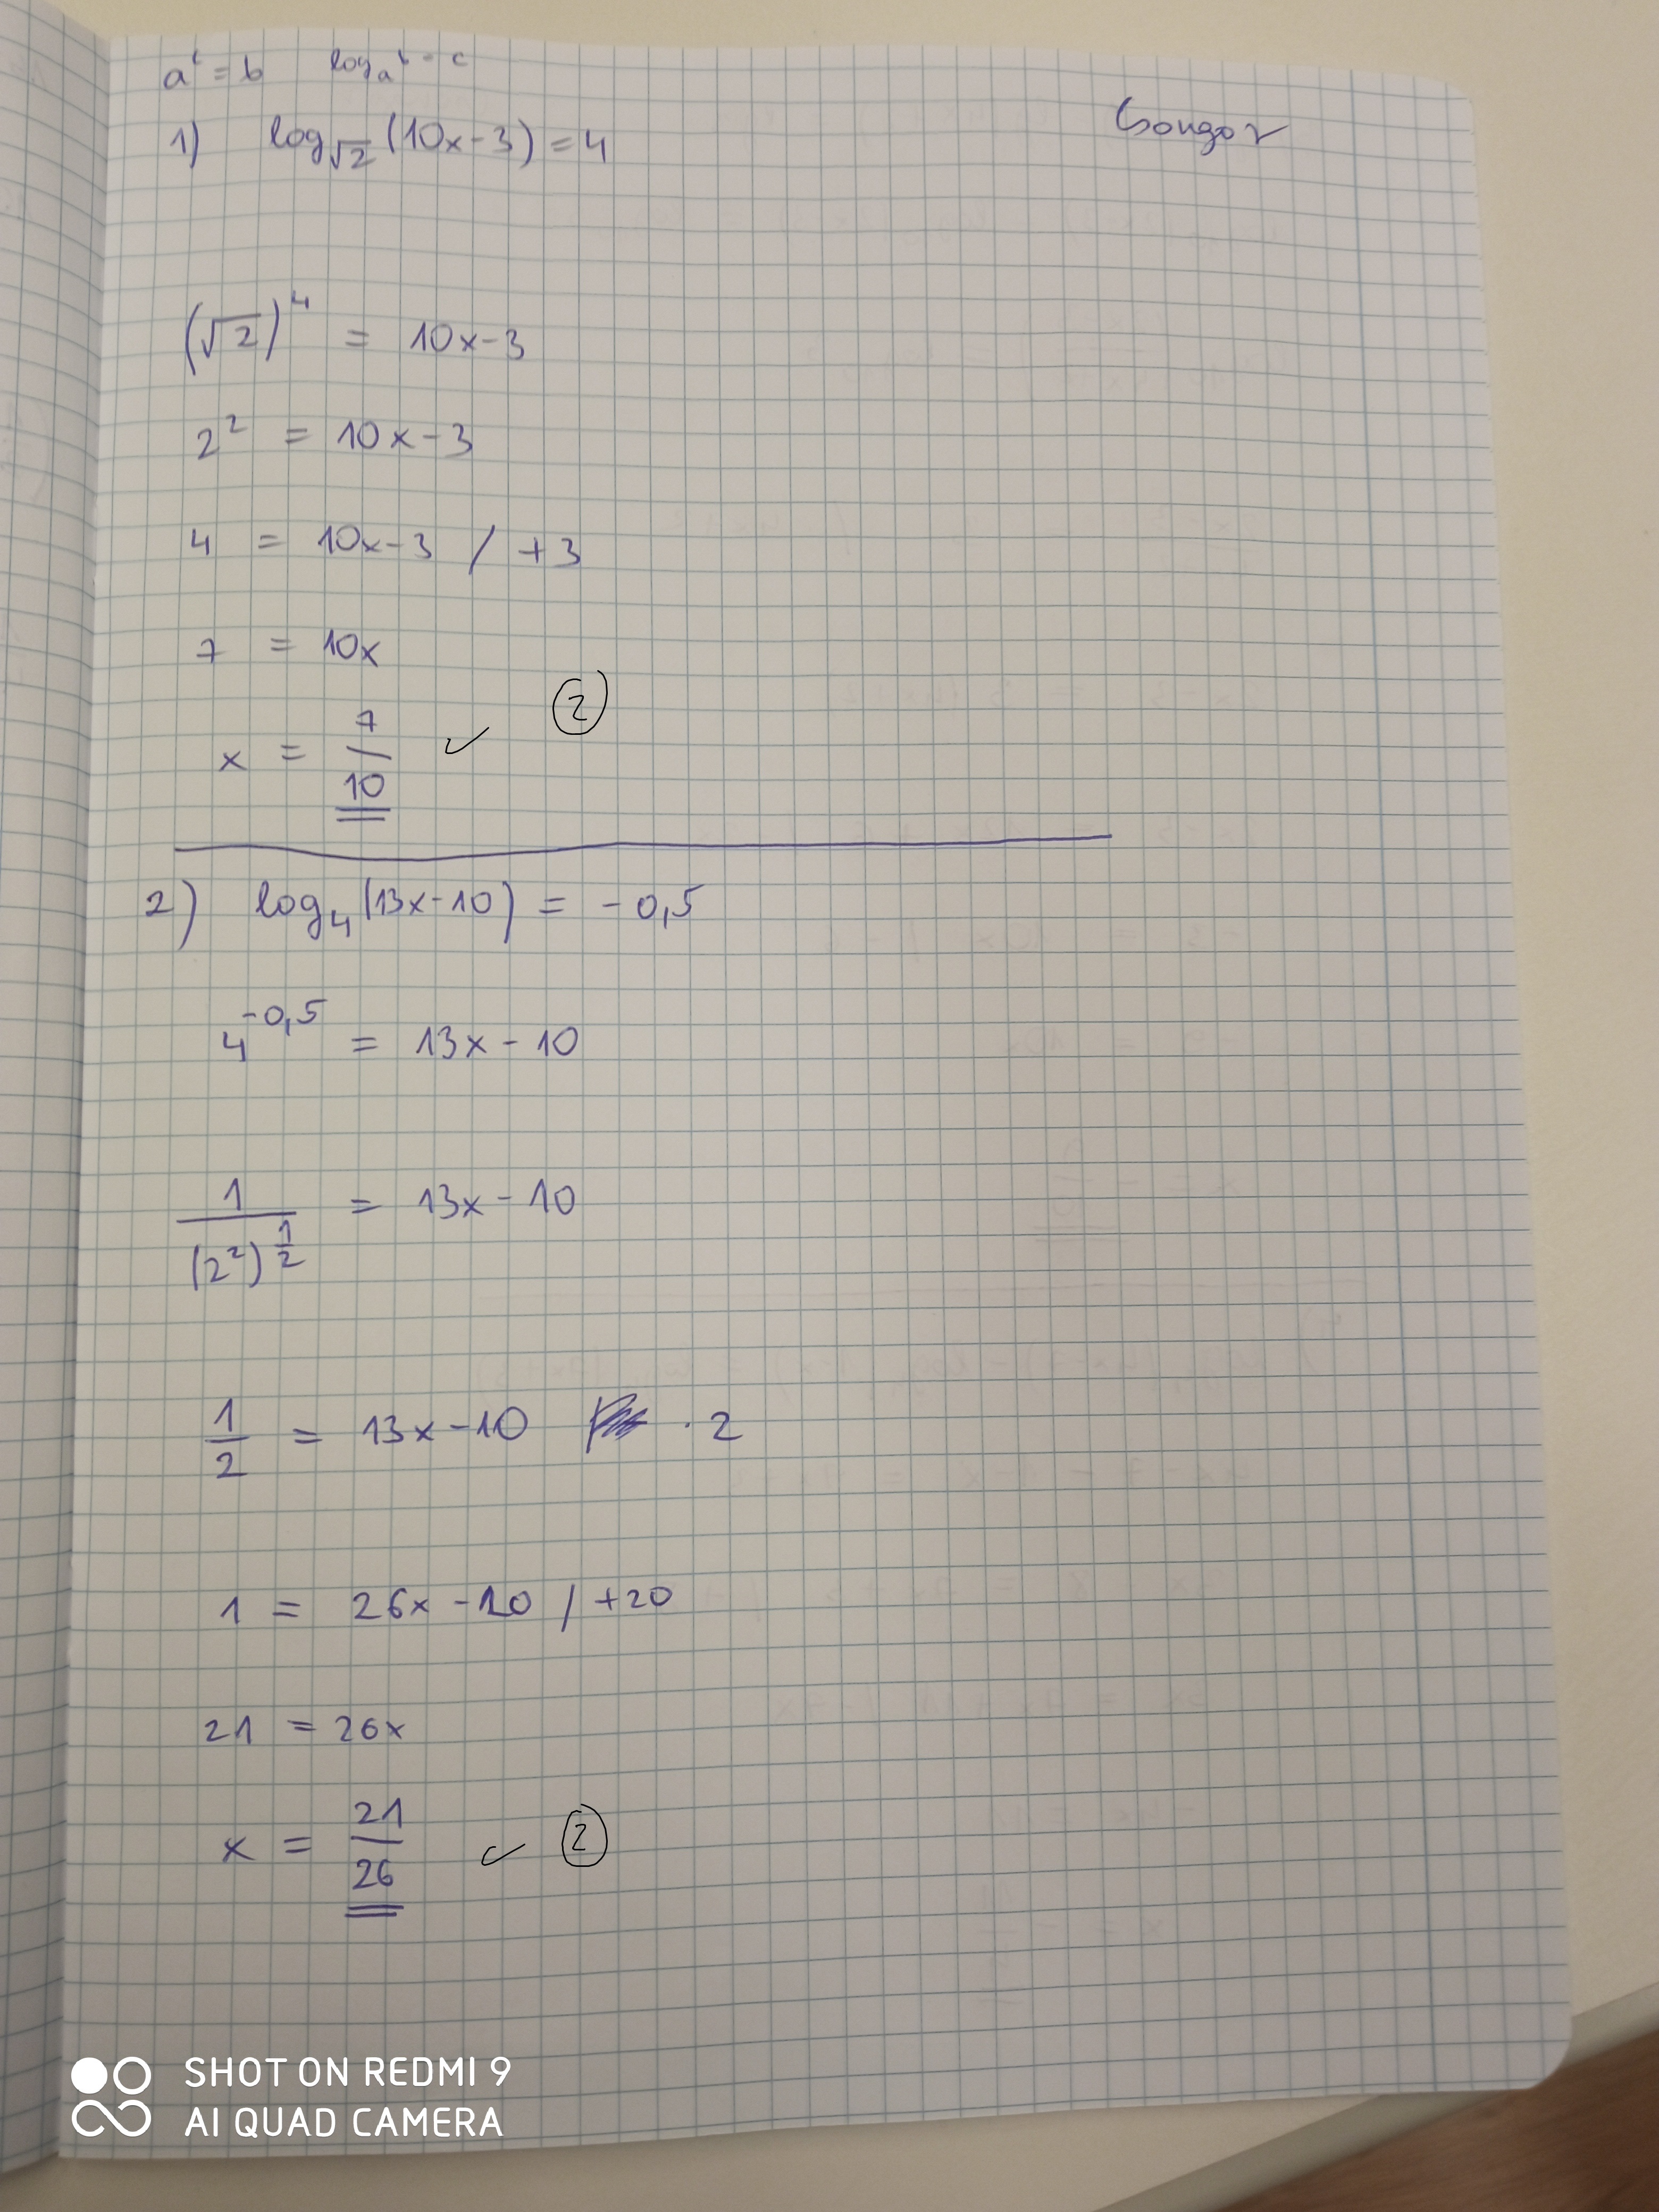 a^c = b   log_a b = c
Gongor
1) log_√2 (10x-3) = 4
(√2)^4 = 10x-3
2^2 = 10x-3
4 = 10x-3 / +3
7 = 10x
x = 7/10 ✓ ②
2) log_4 (13x-10) = -0,5
4^-0,5 = 13x-10
1/(2^2)^1/2 = 13x-10
1/2 = 13x-10 · 2
1 = 26x-20 / +20
21 = 26x
x = 21/26 ✓ ②
SHOT ON REDMI 9
AI QUAD CAMERA